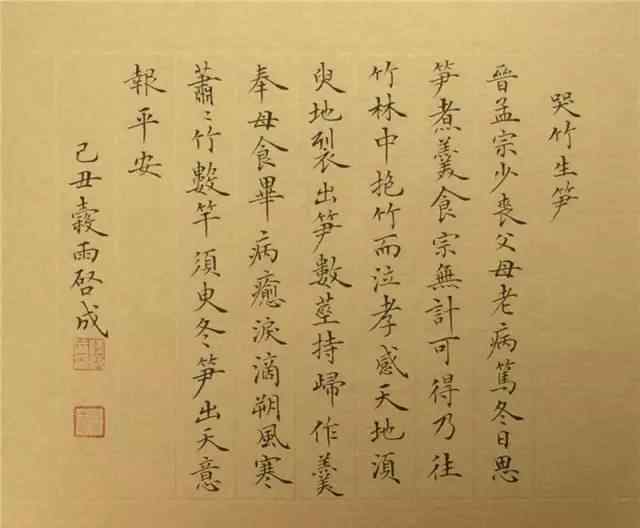 哭竹生笋
晉孟宗少喪父母老病篤冬日思
笋煮羹食宗無計可得乃往
竹林中抱竹而泣孝感天地湏
臾地裂出笋數莖持歸作羹
奉母食畢病癒淚滴朔風寒
蕭〻竹數竿須臾冬笋出天意
報平安
己丑穀雨啓成